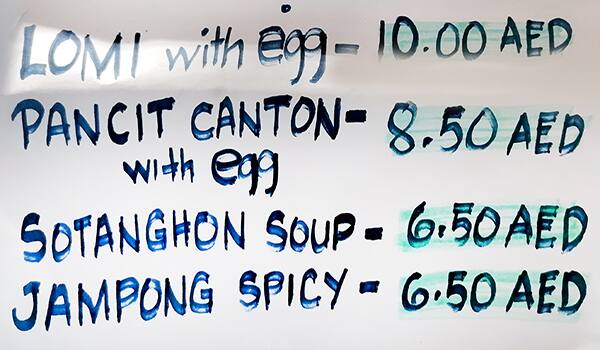 LOMI with egg - 10.00 AED
PANCIT CANTON - 8.50 AED
with egg
SOTANGHON SOUP - 6.50 AED
JAMPONG SPICY - 6.50 AED